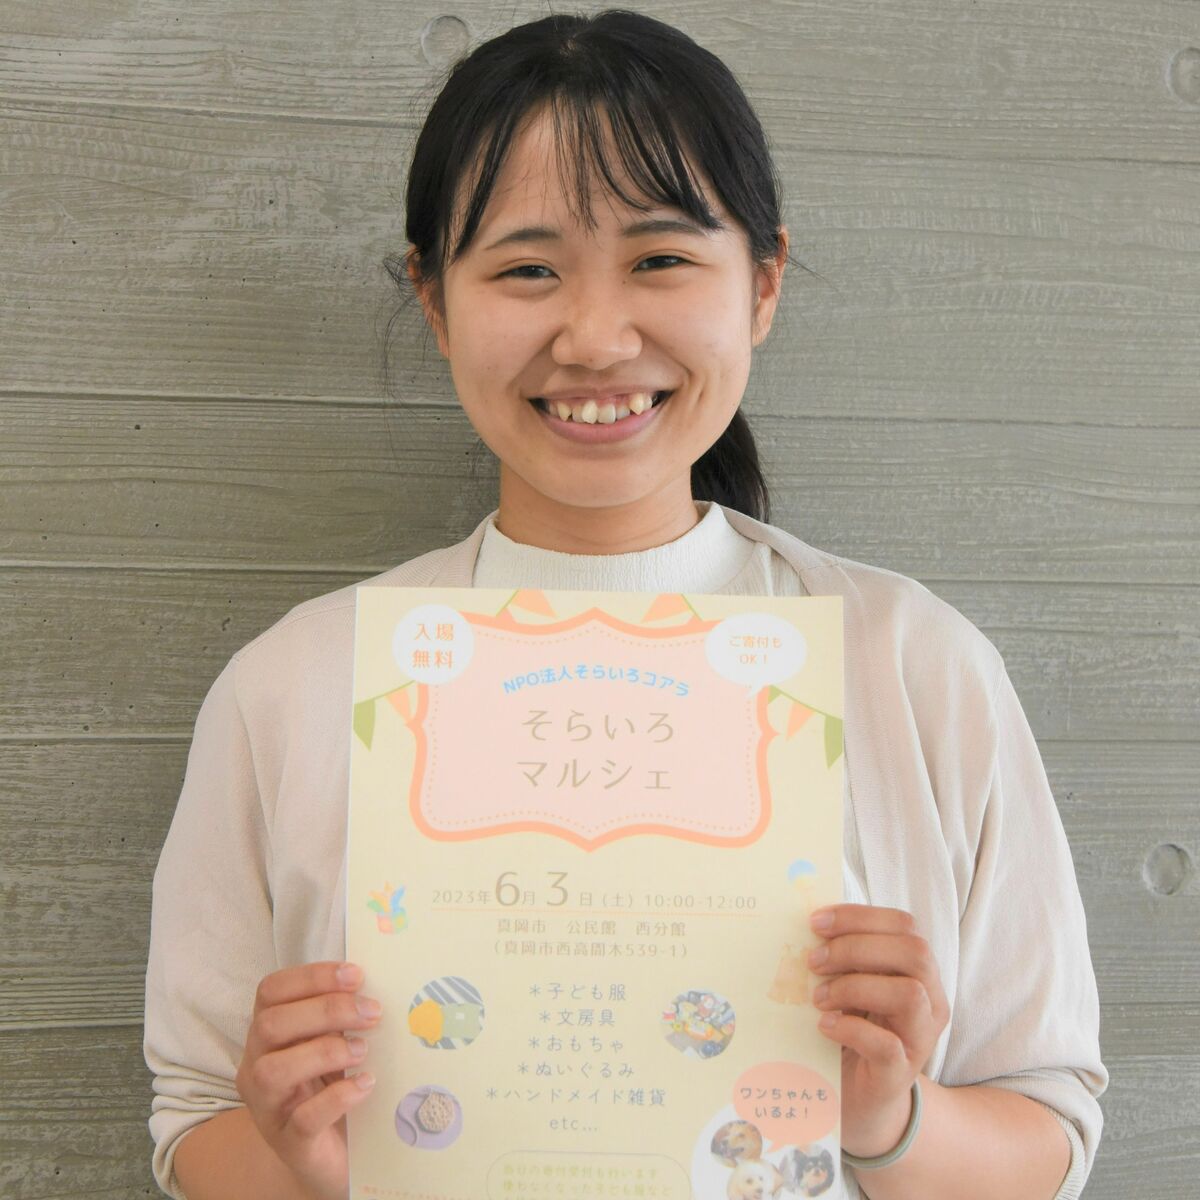 入場
無料
ご寄付も
OK！
NPO法人そらいろコアラ
そらいろ
マルシェ
2023年6月3日(土) 10:00-12:00
真岡市 公民館 西分館
(真岡市西高間木539-1)
＊子ども服
＊文房具
＊おもちゃ
＊ぬいぐるみ
＊ハンドメイド雑貨
etc...
ワンちゃんも
いるよ！
当日の寄付受付も行います